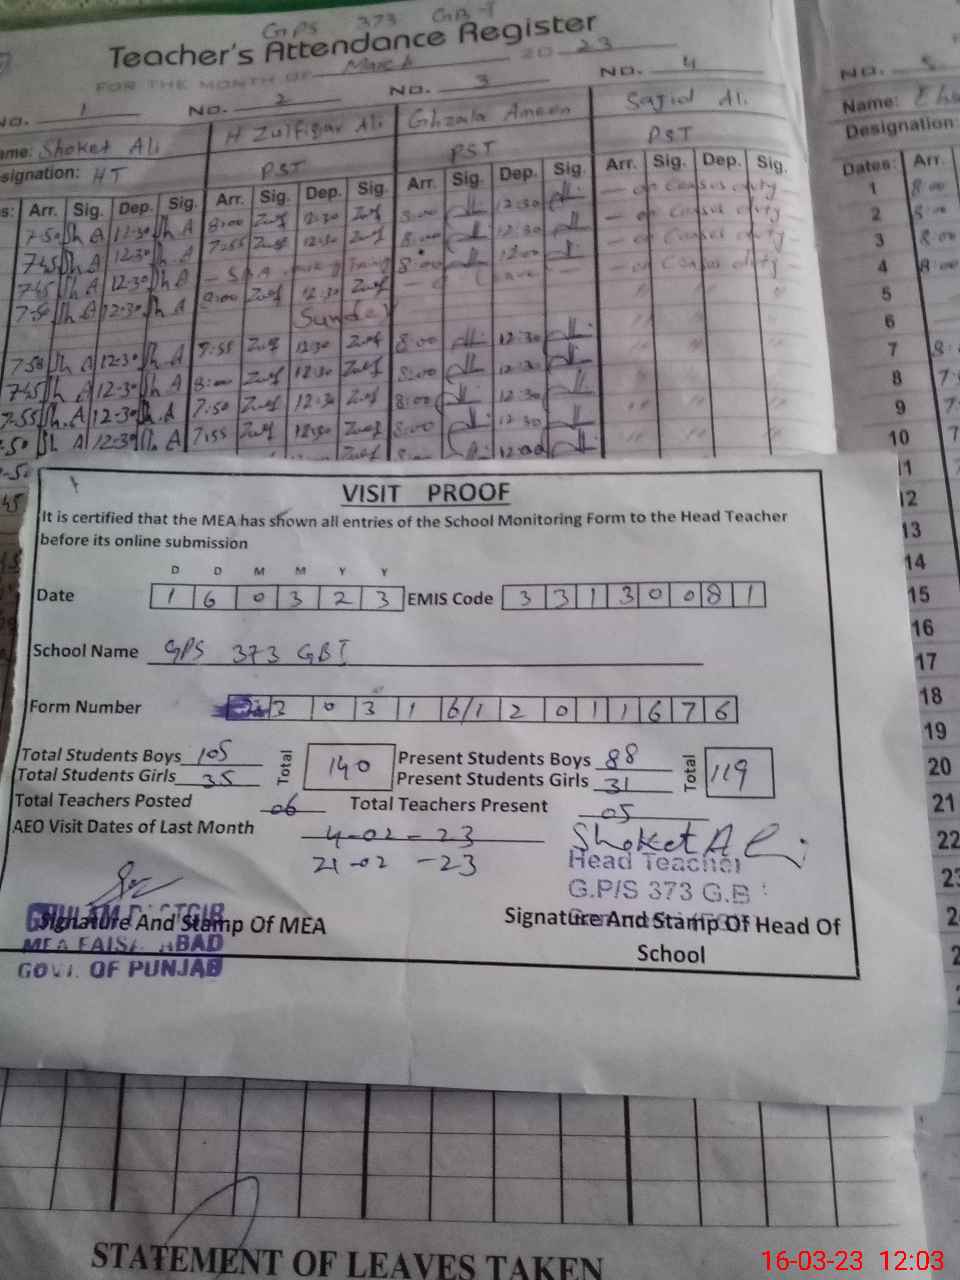 GPS 373 GB-I
Teacher's Attendance Register
FOR THE MONTH OF March 2023
NO. 1 NO. 2 NO. 3 NO. 4 NO. 5
ame: Shoket Ali H Zulfiqar Ali Ghzala Ameen Sajid Ali Name:
signation: HT PST PST PST Designation:
s: Arr. Sig. Dep. Sig. Arr. Sig. Dep. Sig. Arr. Sig. Dep. Sig. Arr. Sig. Dep. Sig. Dates: Arr.
7-50 Sh A 12-30 Sh A 8:00 Zulf 12:30 Zulf 8:00 12:30 - on Census duty - 1 8:00
7:45 Sh A 12:30 Sh A 7:55 Zulf 12:30 Zulf 8:00 12:30 - on Census duty - 2 8:00
7:45 Sh A 12:30 Sh A 8:00 12:00 - on Census duty - 3 8:00
7:50 Sh A 12:30 Sh A 8:00 Zulf 12:30 Zulf - leave - - on Census duty - 4 8:00
Sunday 5
6
7:50 Sh A 12-30 Sh A 7:55 Zulf 12:30 Zulf 8:00 12:30 " " 7 8:
7:45 Sh A 12-30 Sh A 8:00 Zulf 12:30 Zulf 8:00 12:30 " " 8 7:
7-55 Sh. A 12-30 Sh. A 7:50 Zulf 12:30 Zulf 8:00 12:30 " " 9 7:
-50 Sh A 12-30 Sh A 7:55 Zulf 12:30 Zulf 8:00 12:30 " " 10 7
12:00 11
VISIT PROOF
It is certified that the MEA has shown all entries of the School Monitoring Form to the Head Teacher
before its online submission
D D M M Y Y
Date 1 6 0 3 2 3 EMIS Code 3 3 1 3 0 0 8 1
School Name GPS 373 GB I
Form Number 2 3 0 3 1 6/1 2 0 1 1 6 7 6
Total Students Boys 105 Total 140 Present Students Boys 88 Total 119
Total Students Girls 35 Present Students Girls 31
Total Teachers Posted 06 Total Teachers Present 05
AEO Visit Dates of Last Month 4-02-23
21-02-23
Shoket Ali
Head Teacher
G.P/S 373 G.B
GHULAM DASTGIR
Signature And Stamp Of MEA
MEA FAISALABAD
GOVT. OF PUNJAB
Signature And Stamp Of Head Of
School
12
13
14
15
16
17
18
19
20
21
22
23
2
2
STATEMENT OF LEAVES TAKEN
16-03-23 12:03